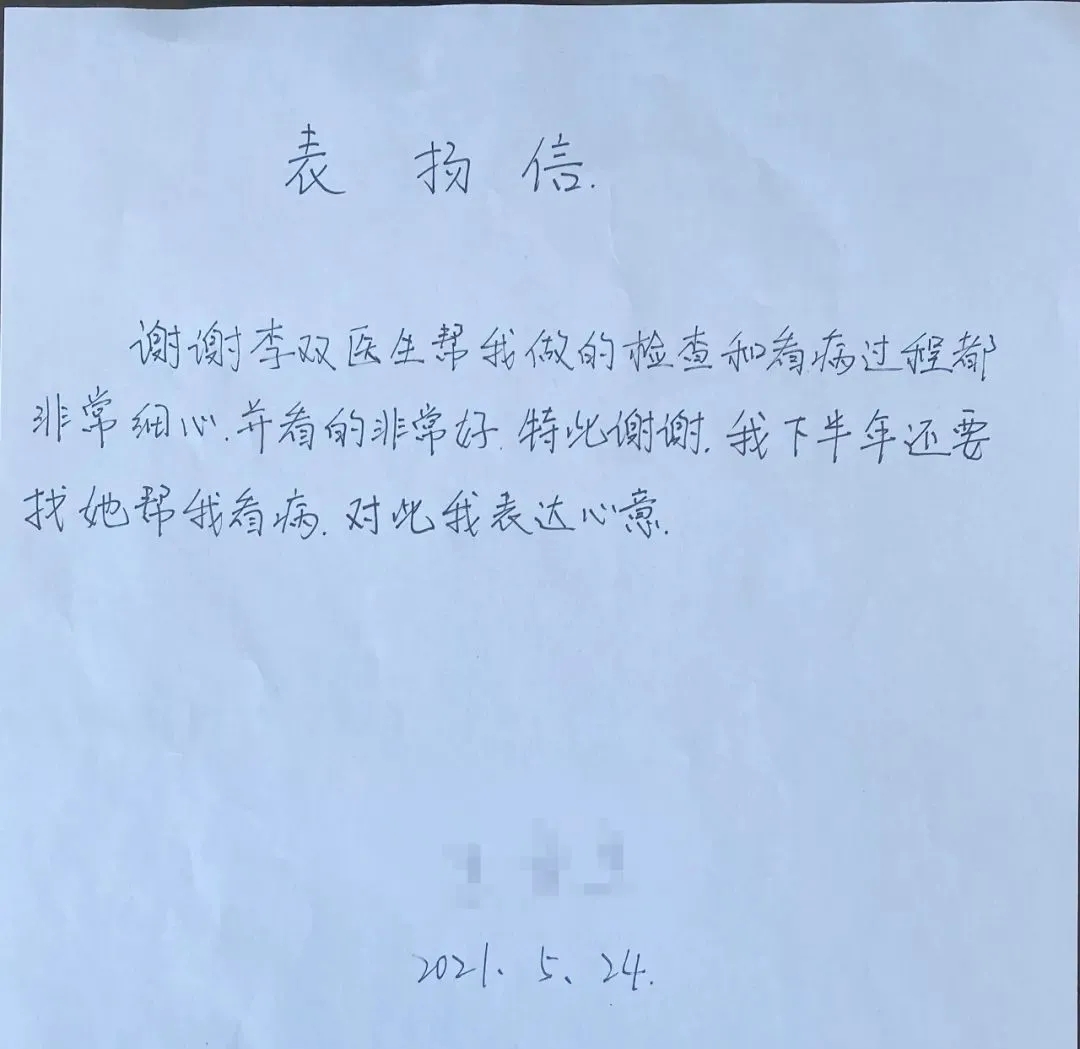 表扬信.
谢谢李双医生帮我做的检查和看病过程都
非常细心.并看的非常好.特此谢谢.我下半年还要
找她帮我看病.对此我表达心意.
2021、5、24.